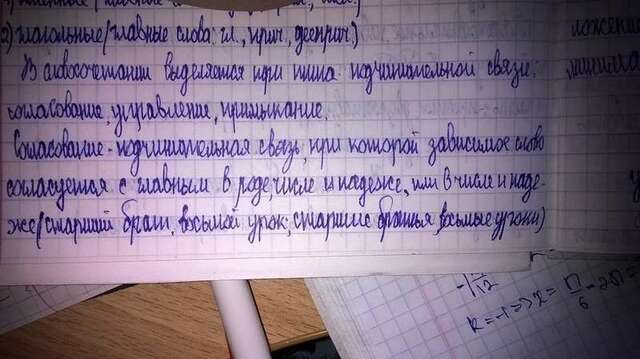 2) глагольные (главные слова: гл., прич., дееприч.)
В словосочетании выделяется три типа подчинительной связи:
согласование, управление, примыкание.
Согласование - подчинительная связь, при которой зависимое слово
согласуется с главным в роде, числе и падеже, или в числе и паде-
же (старший брат, восьмой урок; старшие братья, восьмые уроки)
ложени
π/12
k=-1 => x = π/6 - 2π =